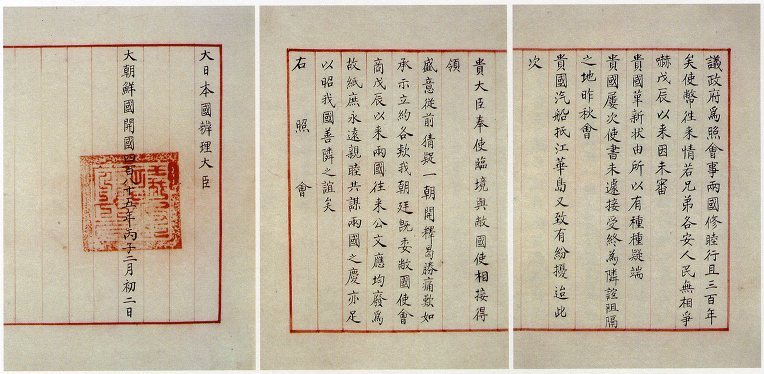 議政府爲照會事兩國修睦行且三百年
矣使幣往来情若兄弟各安人民無相爭
嚇戊辰以来因未審
貴國革新狀由所以有種種疑端
貴國屢次使書未遽接受終爲隣誼阻隔
之地昨秋會
貴國汽船抵江華島又致有紛擾迨此
次
貴大臣奉使臨境與敝國使相接得
領
盛意從前猜疑一朝開釋曷勝痛歎如
承示立約各欵我朝廷旣委敝國使會
商戊辰以来兩國往来公文應均廢爲
故紙庶永遠親睦共謀兩國之慶亦足
以昭我國善隣之誼矣
右 照 會
大日本國辨理大臣
大朝鮮國開國四百八十五年丙子二月初二日